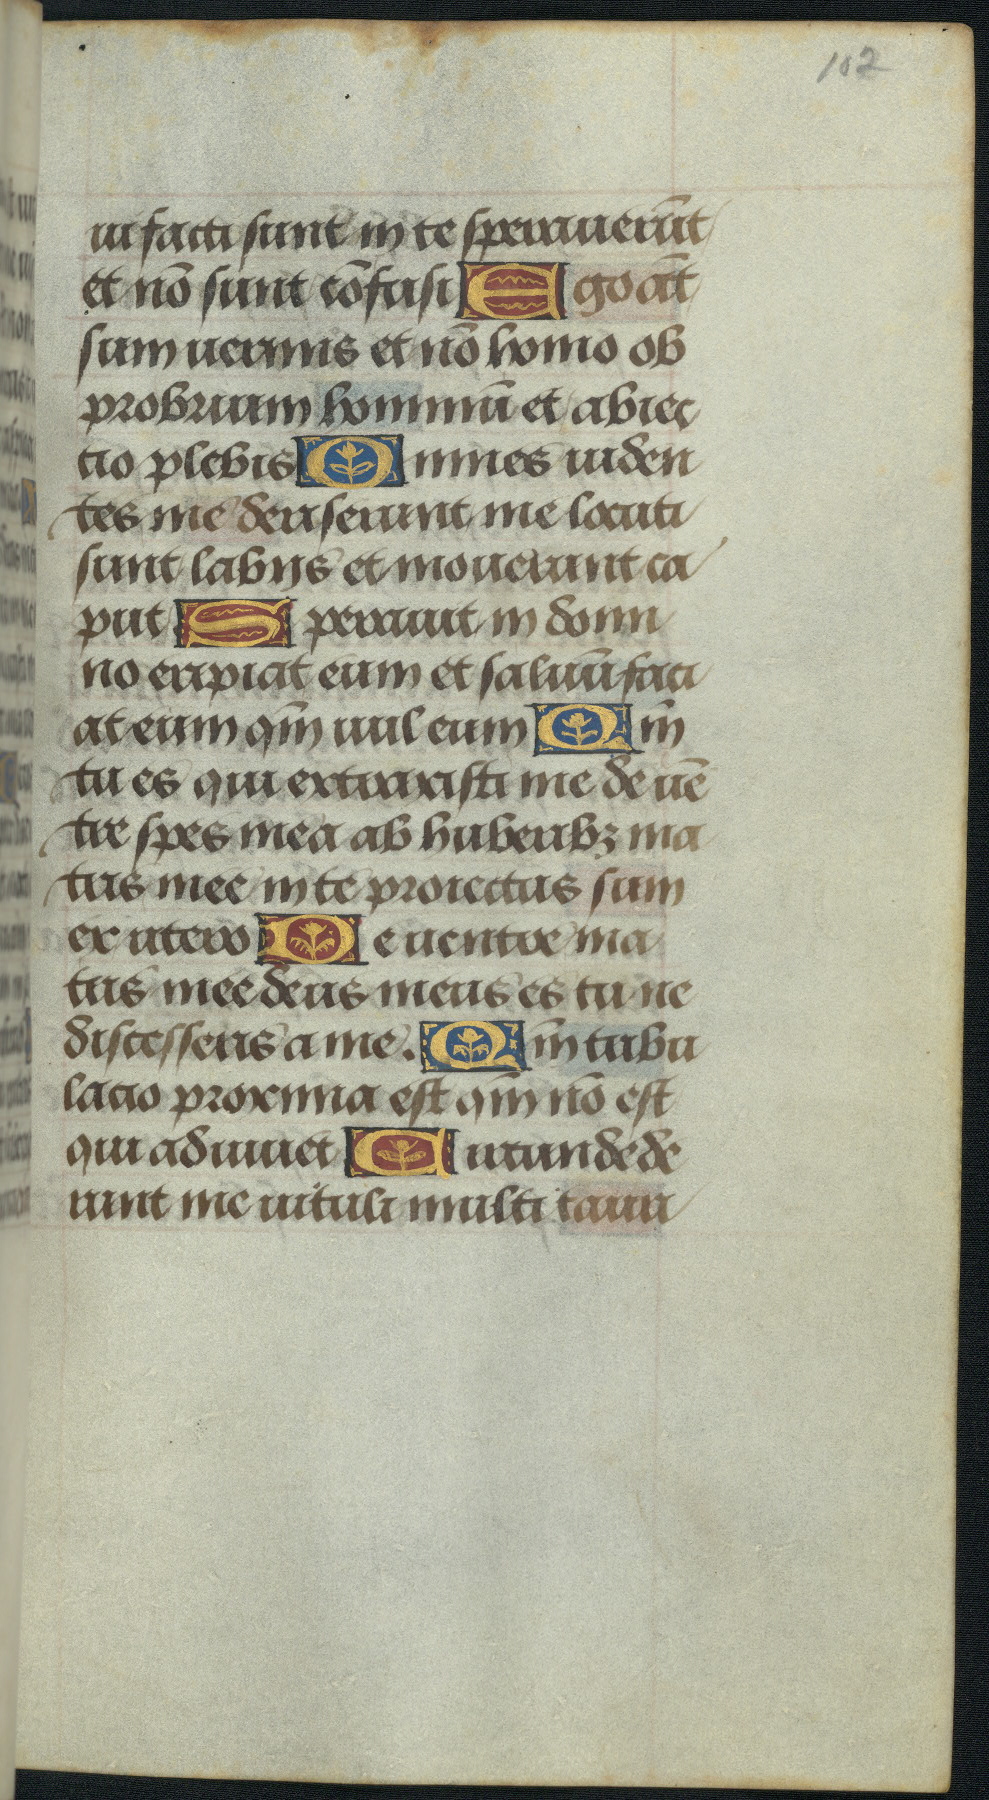 102
ui facti sunt in te speraueru̅t
et no̅ sunt co̅fusi Ego au̅t
sum uermis et no̅ homo ob
probrium hominu̅ et abiec
tio plebis Omnes uiden
tes me deriserunt me locuti
sunt labijs et mouerunt ca
put Sperauit in domi
no eripiat eum et saluu̅ faci
at eum qm̅ uul eum Qm̅
tu es qui extraxisti me de ue̅
tre spes mea ab huberibꝫ ma
tris mee in te proiectus sum
ex utero De uentre ma
tris mee deus meus es tu ne
discesseris a me. Qm̅ tribu
latio proxima est qm̅ no̅ est
qui adiuuet Circundede
runt me uituli multi tauri